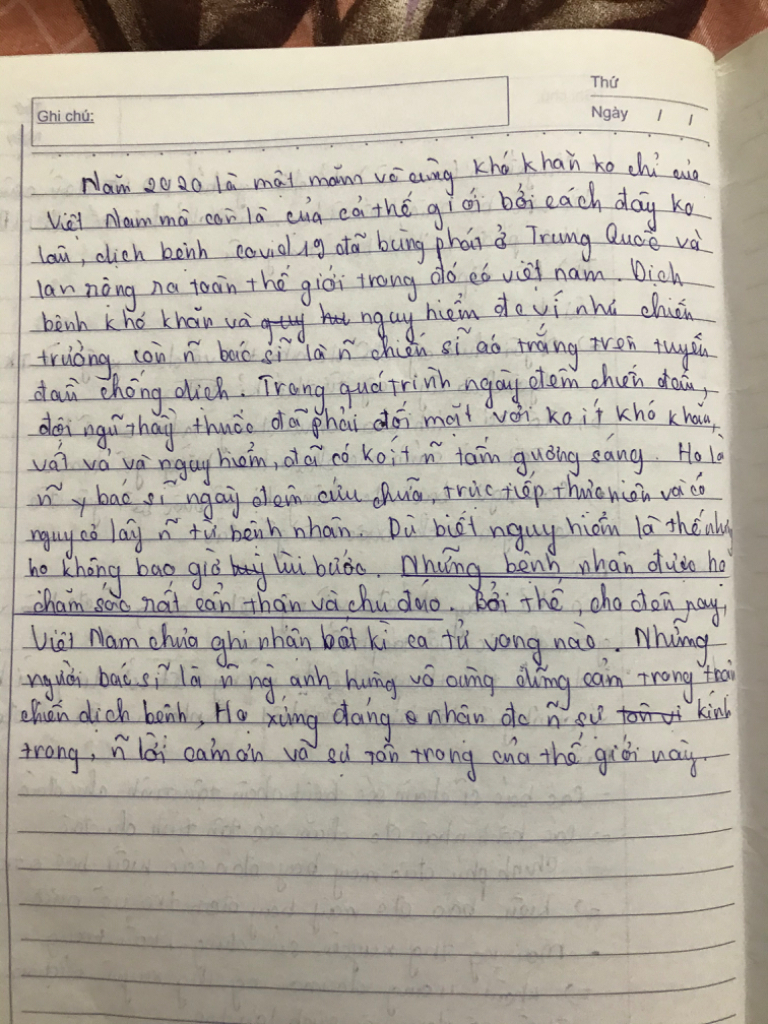 Thứ
Ghi chú:
Ngày / /
Năm 2020 là một năm vô cùng khó khăn ko chỉ của
Việt Nam mà còn là của cả thế giới bởi cách đây ko
lâu, dịch bệnh covid 19 đã bùng phát ở Trung Quốc và
lan rộng ra toàn thế giới trong đó có việt nam. Dịch
bệnh khó khăn và nguy hiểm đc ví như chiến
trường còn ~n bác sĩ là ~n chiến sĩ áo trắng trên tuyến
đầu chống dịch. Trong quá trình ngày đêm chiến đấu,
đội ngũ thầy thuốc đã phải đối mặt với ko ít khó khăn,
vất vả và nguy hiểm, đã có ko ít ~n tấm gương sáng. Họ là
~n y bác sĩ ngày đêm cứu chữa, trực tiếp thực hiện và có
nguy cơ lây ~n từ bệnh nhân. Dù biết nguy hiểm là thế nhưng
họ không bao giờ lùi bước. Những bệnh nhân được họ
chăm sóc rất cẩn thận và chu đáo. Bởi thế, cho đến nay,
Việt Nam chưa ghi nhận bất kì ca tử vong nào. Những
người bác sĩ là ~n ng anh hùng vô cùng dũng cảm trong trận
chiến dịch bệnh, Họ xứng đáng nhận đc ~n sự kính
trọng, ~n lời cảm ơn và sự tôn trọng của thế giới này.